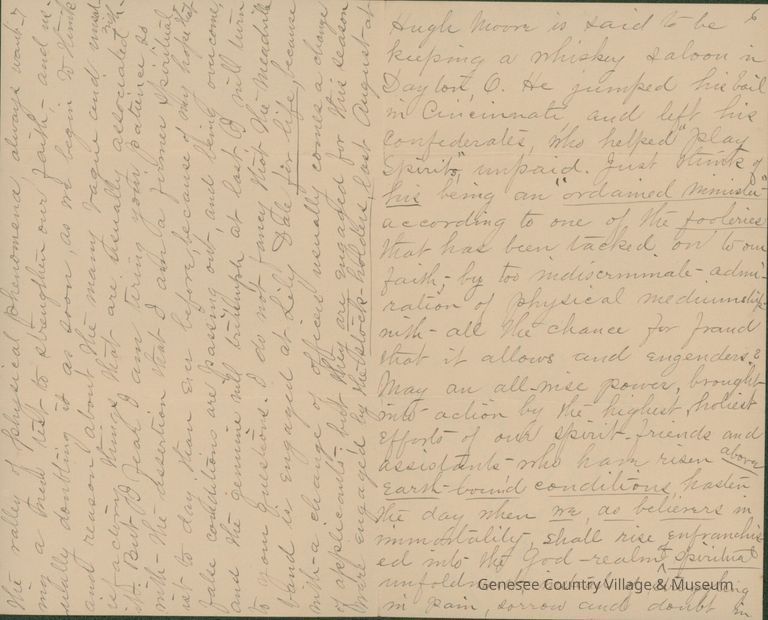 6
Hugh Moore is said to be
keeping a whiskey saloon in
Dayton, O. He jumped his bail
in Cincinnati, and left his
confederates, who helped "play
Spirits," unpaid. Just think of
his being an "ordained minister"
according to one of the fooleries
that has been tacked on to our
faith, by too indiscriminate admi-
ration of physical mediumship
with all the chance for fraud
that it allows and engenders.
May an all-wise power, brought
into action by the highest, holiest
efforts of our spirit-friends and
assistants who have risen above
Earth-bound conditions hasten
the day when we, as believers in
immortality, shall rise enfranchis
ed into the God-realm spiritual
unfoldment
in pain, sorrow and doubt in
the valley of physical phenomena always want-
ing a test to strengthen our faith, and
doubting it as soon, as we begin to think
and reason about the many vague and
things that are usually associated with
it. But I fear I am tiring your patience so
with the assertion that I am a former Spiritual
ist to day than ever before, because of my hope that
fake conditions are passing out and being overcome,
and the genuine will triumph at last I will turn
to your questions. I do not fancy that the Meadville
band is engaged at Lily Dale for life, because
with a change of officers usually comes a change
of applicants, but they are engaged for this season
were engaged by the stock-holders last August at
Genesee Country Village & Museum